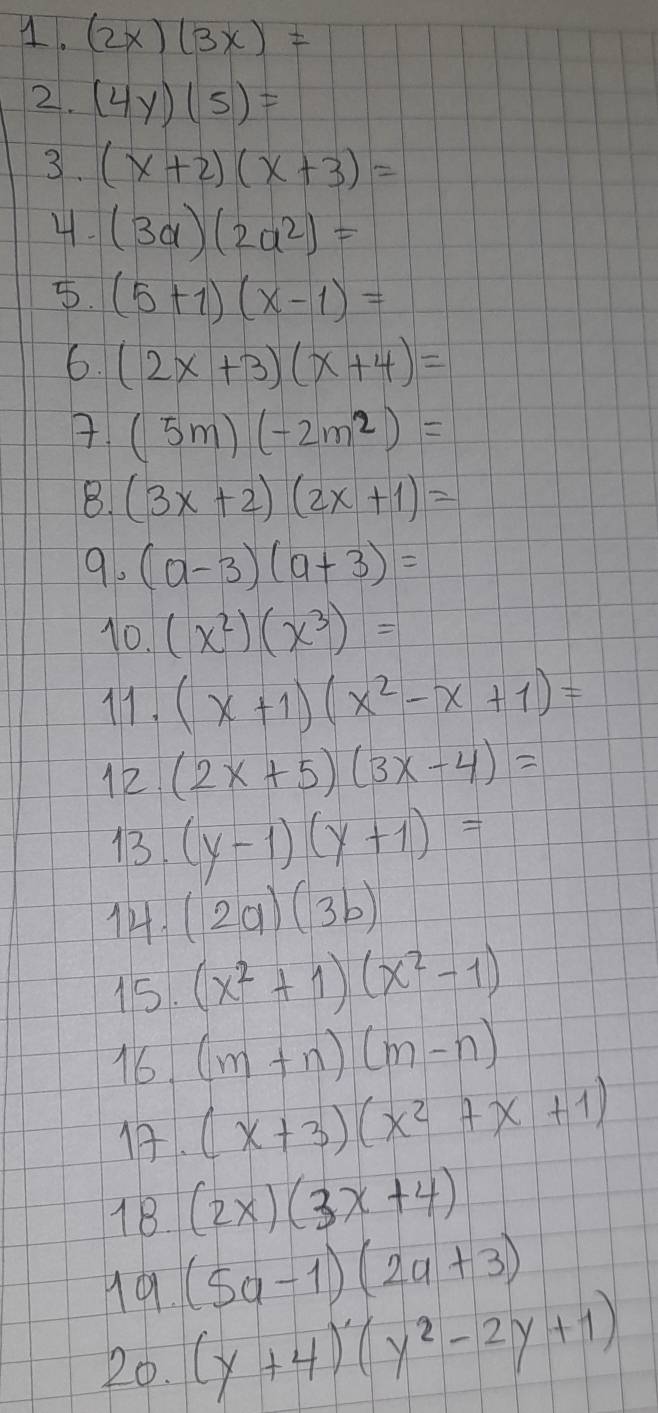 1. (2x)(3x) =
2. (4y)(5) =
3. (x+2)(x+3) =
4. (3a)(2a²) =
5. (5+1)(x-1) =
6. (2x+3)(x+4) =
7. (5m)(-2m²) =
8. (3x+2)(2x+1) =
9. (a-3)(a+3) =
10. (x²)(x³) =
11. (x+1)(x²-x+1) =
12. (2x+5)(3x-4) =
13. (y-1)(y+1) =
14. (2a)(3b)
15. (x²+1)(x²-1)
16. (m+n)(m-n)
17. (x+3)(x²+x+1)
18. (2x)(3x+4)
19. (5a-1)(2a+3)
20. (y+4)(y²-2y+1)